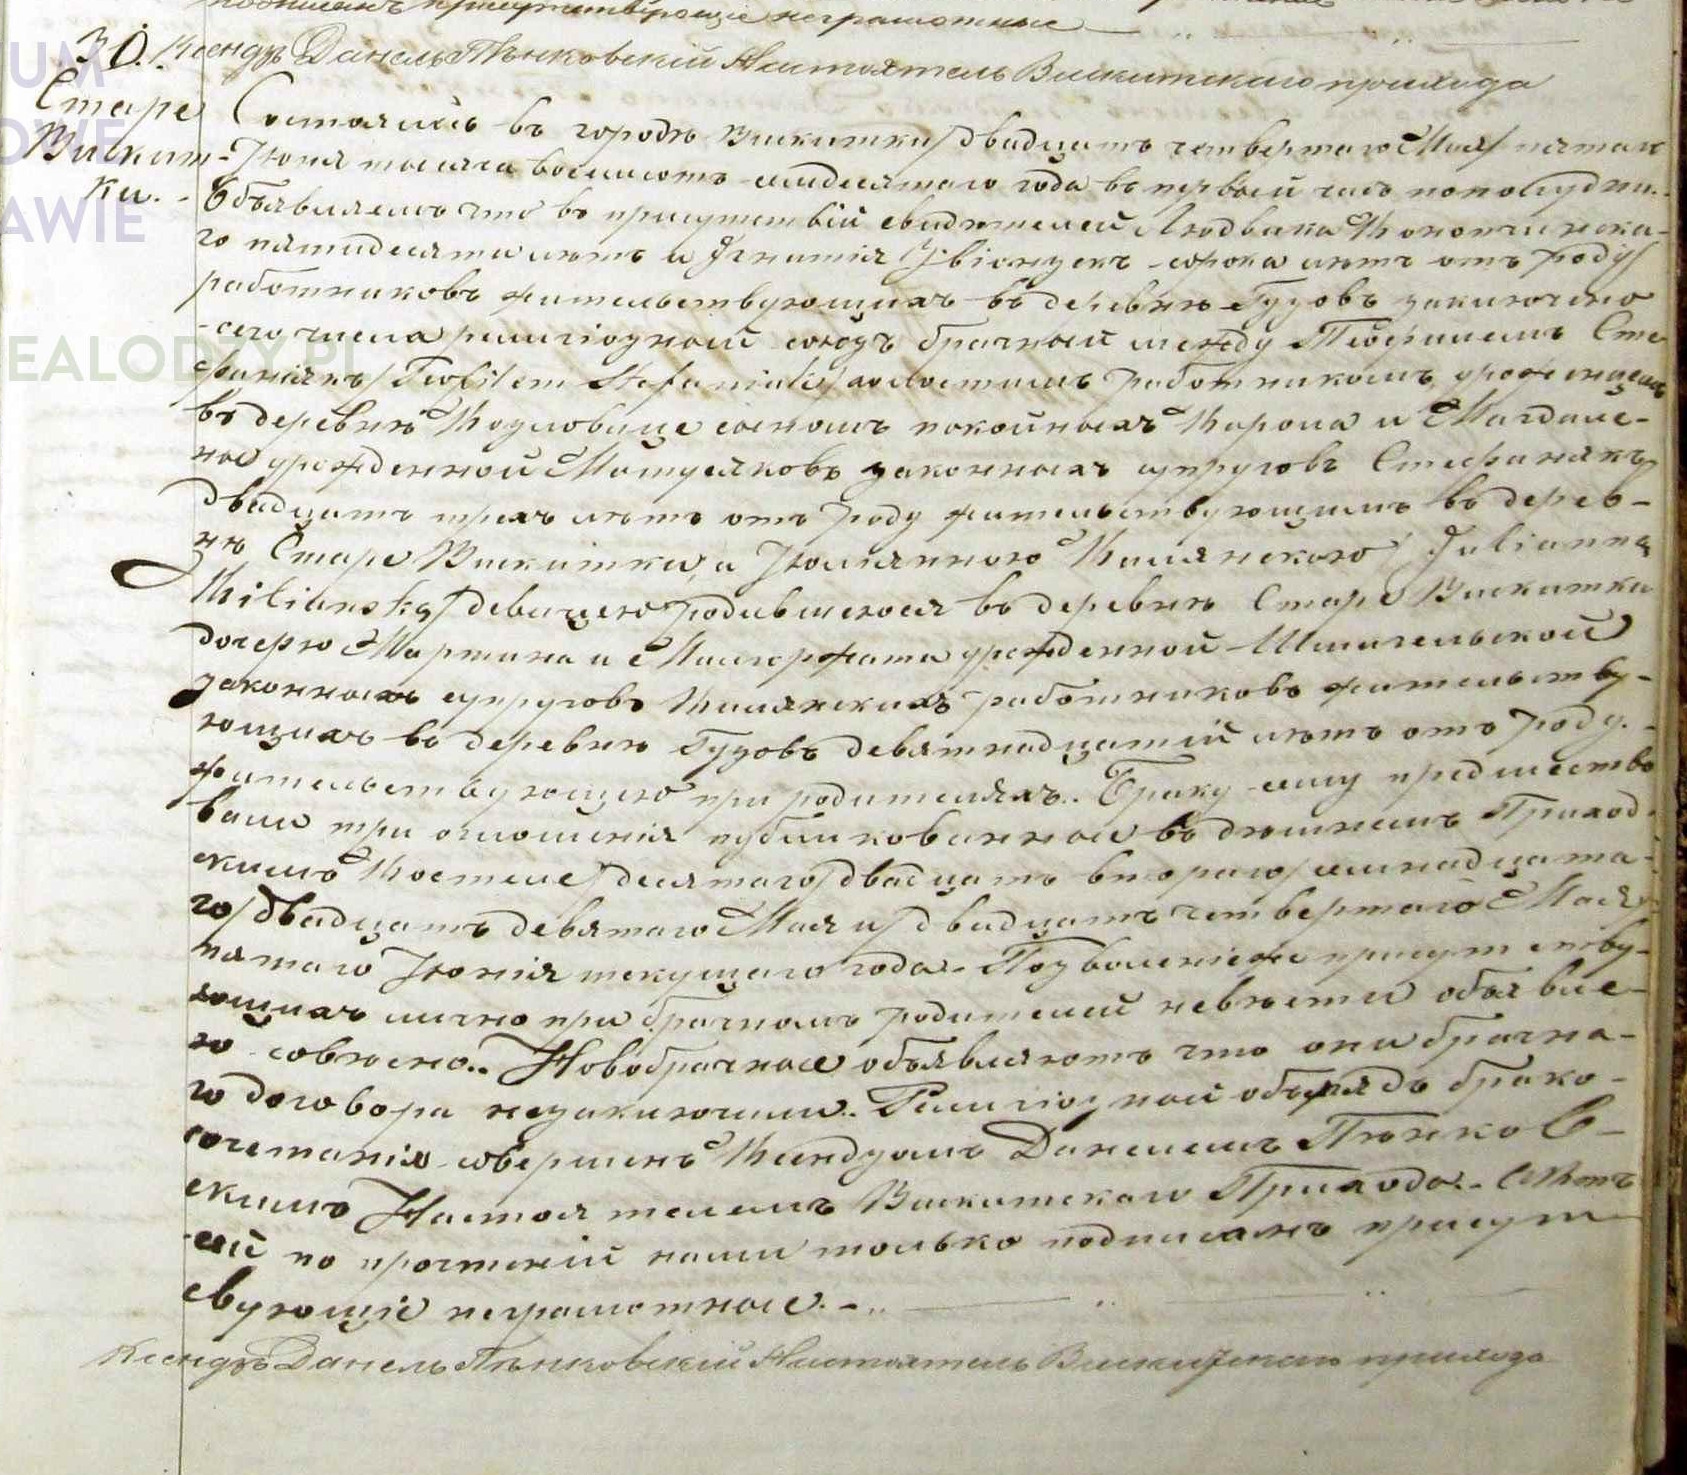 подписанъ присутствующіе неграмотные
Ксендзъ Данель Пѣнковскій Настоятель Вискитскаго прихода
30.
Старе
Вискит-
ки.
Состоялось въ городѣ Вискитки /двадцать четвертаго Мая/ пятаго
Іюня тысяча восемьсотъ семдесятаго года въ первый часъ пополудни.
Объявляемъ что въ присутствіи свидѣтелей Людвика Конопчинска-
го пятидесяти лѣтъ и Игнатія Гвіондзекъ сорока лѣтъ отъ роду
работниковъ жительствующихъ въ деревнѣ Гузовъ заключено
сего числа религіозный союзъ брачный между Теофилемъ Сте
фанякъ /Teofilem Stefaniak/ холостымъ работникомъ урожденцемъ
въ деревнѣ Козловице сыномъ покойныхъ Кароля и Магдале-
ны урожденной Матусяковъ законныхъ супруговъ Стефанякъ
двадцать трехъ лѣтъ отъ роду жительствующимъ въ дерев-
нѣ Старе Вискитки, и Юлiянною Килянскою /Julianną
Kilianską/ девицею родившеюся въ деревнѣ Старе Вискитки
дочерю Мартина и Малгоржаты урожденной
законныхъ супруговъ Килянскихъ работниковъ жительству-
ющихъ въ деревнѣ Гузовъ девятнадцатій лѣтъ отъ роду.
жительствующею при родителяхъ. Браку сему предшество
вали три оглошенія публикованные въ здѣшнемъ Приход-
скимъ Костеле /десятаго/ двадцать втораго /семнадцата-
го/ двадцать девятаго Мая и /двадцать четвертаго Мая/
пятаго Іюнія текущаго года. Позволеніе же присутству-
ющихъ лично при брачномъ родителей невѣсты объявле-
но словѣсно. Новобрачные объявляютъ что они брачна-
го договора незаключили. Религіозный обрядъ брако-
сочетанія совершенъ Ксендзомъ Данелемъ Пѣнков-
скимъ Настоятелемъ Вискитскаго Прихода. Актъ
сей по прочтеніи нами только подписанъ присут
свующіе неграмотные.
Ксендзъ Данель Пѣнковскій Настоятель Вискитскаго прихода